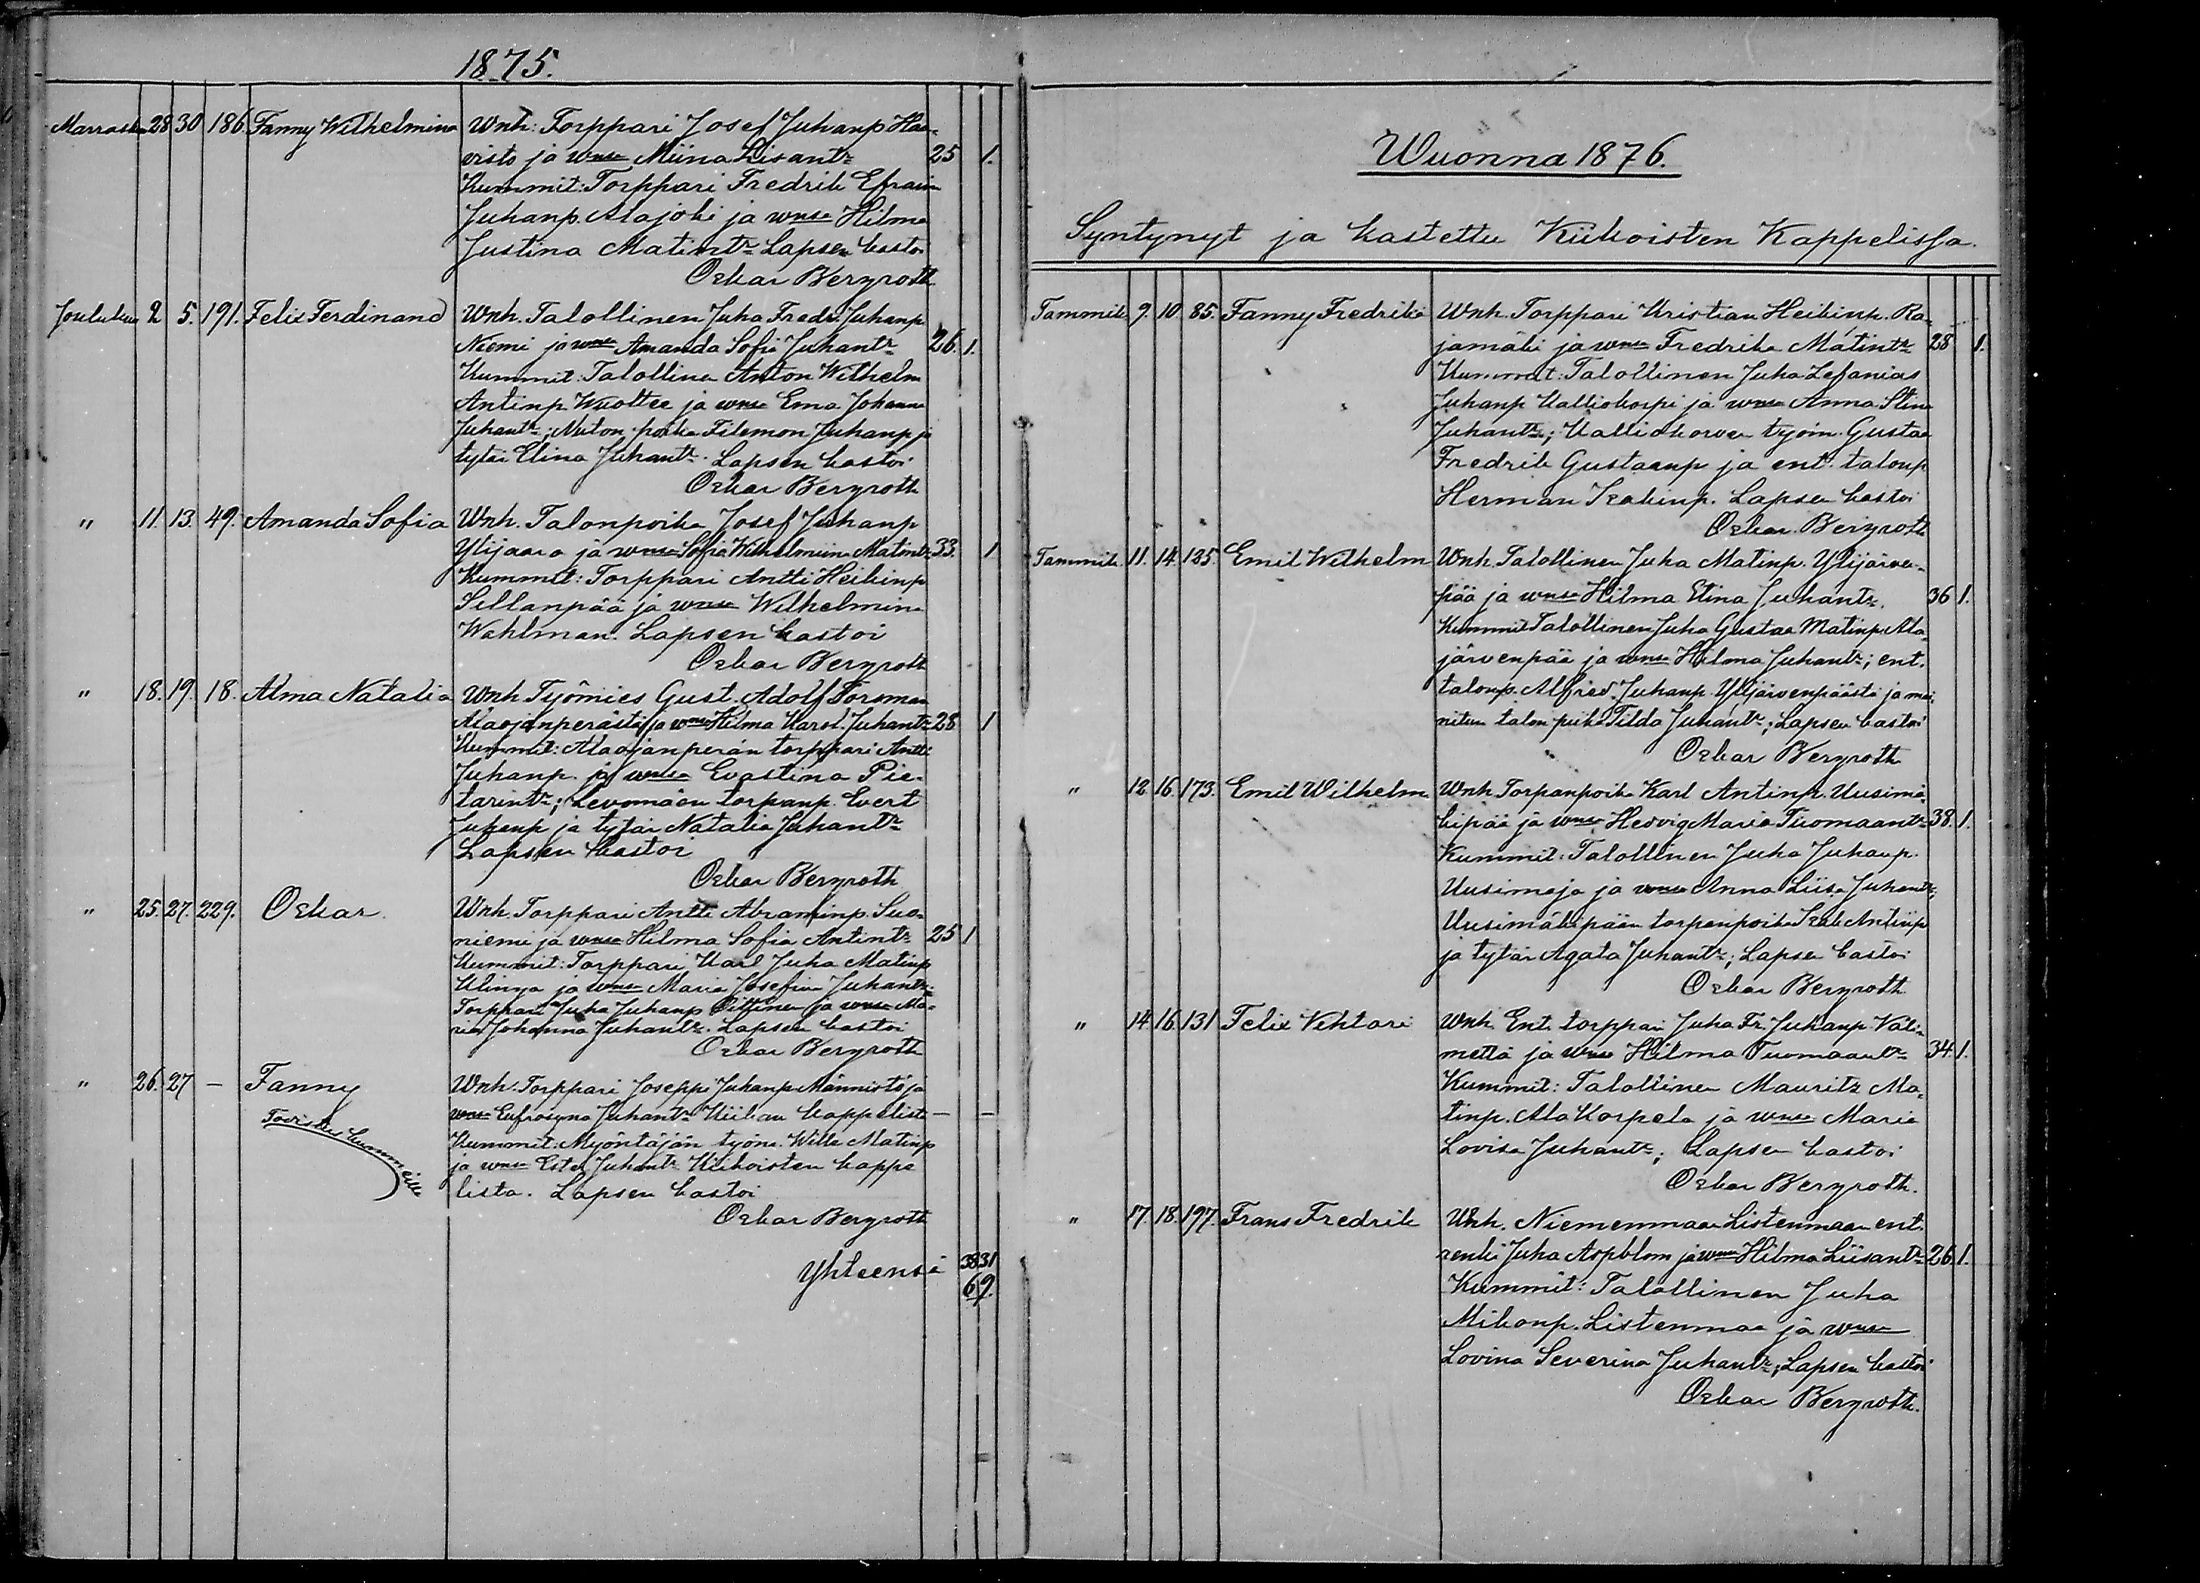 1875.
Marrask. 28 30 186 Fanny Wilhelmina Wnh: Torppari Josef Juhanp Haa-
visto ja wmsa Miina Lisantr 25 1.
Kummit: Torppari Fredrik Efraim
Juhanp. Alajoki ja wmsa Hilma
Justina Matintr Lapsen kastoi
Oskar Bergroth
Joulukuu 2 5. 191. Felix Ferdinand Wnh. Talollinen Juha Fredr. Juhanp
Niemi ja wmsa Amanda Sofia Juhantr 26. 1.
Kummit: Talollinen Anton Wilhelm
Antinp ja wmsa Ema Johanna
Juhantr; poika Filemon Juhanp ja
tytär Elina Juhantr. Lapsen kastoi
Oskar Bergroth
" 11. 13. 49. Amanda Sofia Wnh. Talonpoika Josef Juhanp
Ylijaara ja wmsa Sofia Wilhelmiina Matintr 33. 1
Kummit: Torppari Antti Heikinp
Sillanpää ja wmsa Wilhelmina
Wahlman. Lapsen kastoi
Oskar Bergroth
" 18. 19. 18. Alma Natalia Wnh Tyômies Gust. Adolf Forsman
Alaojanperästä ja wmsa Hilma Karol. Juhantr 28 1
Kummit: Alaojanperän torppari Antti
Juhanp. ja wmsa Evastina Pie-
tarintr; Levomäen torpanp. Evert
Juhanp ja tytär Natalia Juhantr
Lapsen kastoi
Oskar Bergroth
" 25. 27. 229. Oskar. Wnh. Torppari Antti Abraminp. Suo-
niemi ja wmsa Hilma Sofia Antintr 25 1
Kummit: Torppari Karl Juha Matinp
Uusinya ja wmsa Maria Josefina Juhantr;
Torppari Juha Juhanp ja wmsa Ma-
ria Johanna Juhantr. Lapsen kastoi
Oskar Bergroth
" 26. 27 – Fanny Wnh. Torppari Joseppi Juhanp Männistö ja
wmsa Eufrosyna Juhantr Kiikan kappelista – –
Toiriske kummeille Kummit: Myöntäjän työm. Wille Matinp
ja wmsa Ester Juhantr Kiikoisten kappe
lista. Lapsen kastoi
Oskar Bergroth
Yhteensä 38 31
69.
Wuonna 1876.
Syntynyt ja kastettu Kiikoisten Kappelissa.
Tammik 9. 10. 85. Fanny Fredrika Wnh. Torppari Kristian Heikinp. Ra-
jamäki ja wmsa Fredrika Matintr 28 1.
Kummit: Talollinen Juha Zefanias
Juhanp Kalliokorpi ja wmsa Anna Stina
Juhantr; Kalliokorven tyôm. Gustaa
Fredrik Gustaanp ja ent. talonp
Herman Isakinp. Lapsen kastoi
Oskar Bergroth
Tammik. 11. 14. 135. Emil Wilhelm Wnh. Talollinen Juha Matinp. Ylijärven-
pää ja wmsa Hilma Stina Juhantr. 36 1.
Kummit Talollinen Juha Gustaa Matinp. Ala-
järvenpää ja wmsa Hilma Juhantr; ent.
talonp. Alfred Juhanp. Ylijärvenpäästä ja mai-
nitun talon piika Tilda Juhantr; Lapsen kastoi
Oskar Bergroth
" 12. 16. 173. Emil Wilhelm Wnh. Torpanpoika Karl Antinp. Uusimä-
kipää ja wmsa Hedvig Maria Tuomaantr 38. 1.
Kummit: Talollinen Juha Juhanp.
Uusimaja ja wmsa Anna Liisa Juhantr;
Uusimäkipään torpanpoika Isak Antinp
ja tytär Agata Juhantr; Lapsen kastoi
Oskar Bergroth
" 14. 16. 131 Felix Vihtori Wnh. Ent. torppari Juha Fr. Juhanp. Väli-
mettä ja wmsa Hilma Tuomaantr 34. 1.
Kummit: Talollinen Mauritz Ma-
tinp. Ala Korpela ja wmsa Maria
Lovisa Juhantr; Lapsen kastoi
Oskar Bergroth.
" 17. 18. 197. Frans Fredrik Wnh. Niemenmaan Listenmaan ent.
renki Juha Aspblom ja wmsa Hilma Liisantr 26 1.
Kummit: Talollinen Juha
Mikonp. Listenmaa ja wmsa
Lovina Severina Juhantr; Lapsen kastoi
Oskar Bergroth.